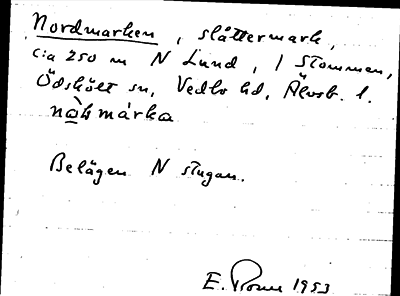 Nordmarken, slåttermark,
c:a 250 m N Lund, / Stommen,
Ödskölt sn, Vedbo hd, Älvsb. l.
märka
Belägen N stugan.
E. 1953